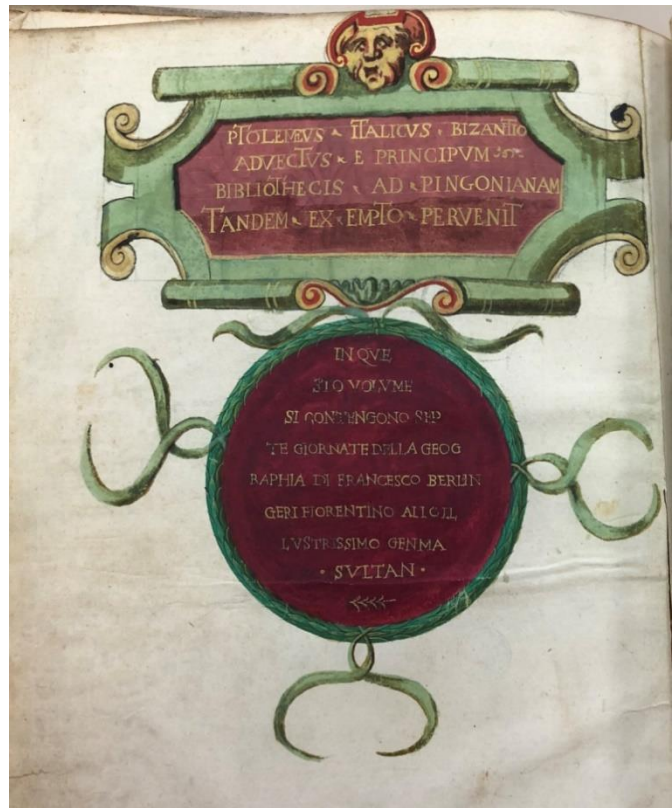 PTOLEMEVS ITALICVS BIZANTIO
ADVECTVS E PRINCIPVM
BIBLIOTHECIS AD PINGONIANAM
TANDEM EX EMPTO PERVENIT
IN QVE
STO VOLVME
SI CONTENGONO SEP
TE GIORNATE DELLA GEOG
RAPHIA DI FRANCESCO BERLIN
GERI FIORENTINO ALLO IL
LVSTRISSIMO GENMA
· SVLTAN ·